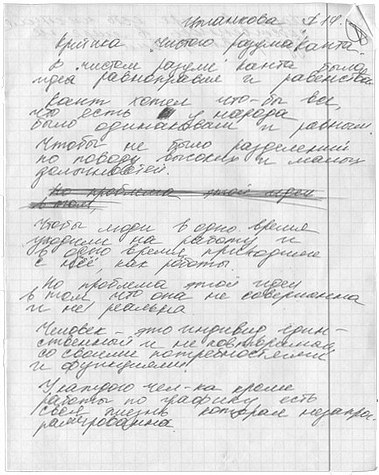 Критика чистого разума канта.
В чистом разуме канта была
идея равноправия и равенства
Кант хотел что-бы все,
что есть у народа
было одинаковым и равным.
Чтобы не было разделений
по поводу высоких и малых
должностей.
Но проблема этой идеи
в том,
Чтобы люди в одно время
уходили на работу и
в одно время приходили
с неё, как роботы.
Но проблема этой идеи
в том что она не совершенна
и не реальна
Человек - это индивид един-
ственный и не повторимый,
со своими потребностями
и функциями.
У каждого чел-ка кроме
работы по графику есть
своя жизнь которая незапрог-
раммированна.